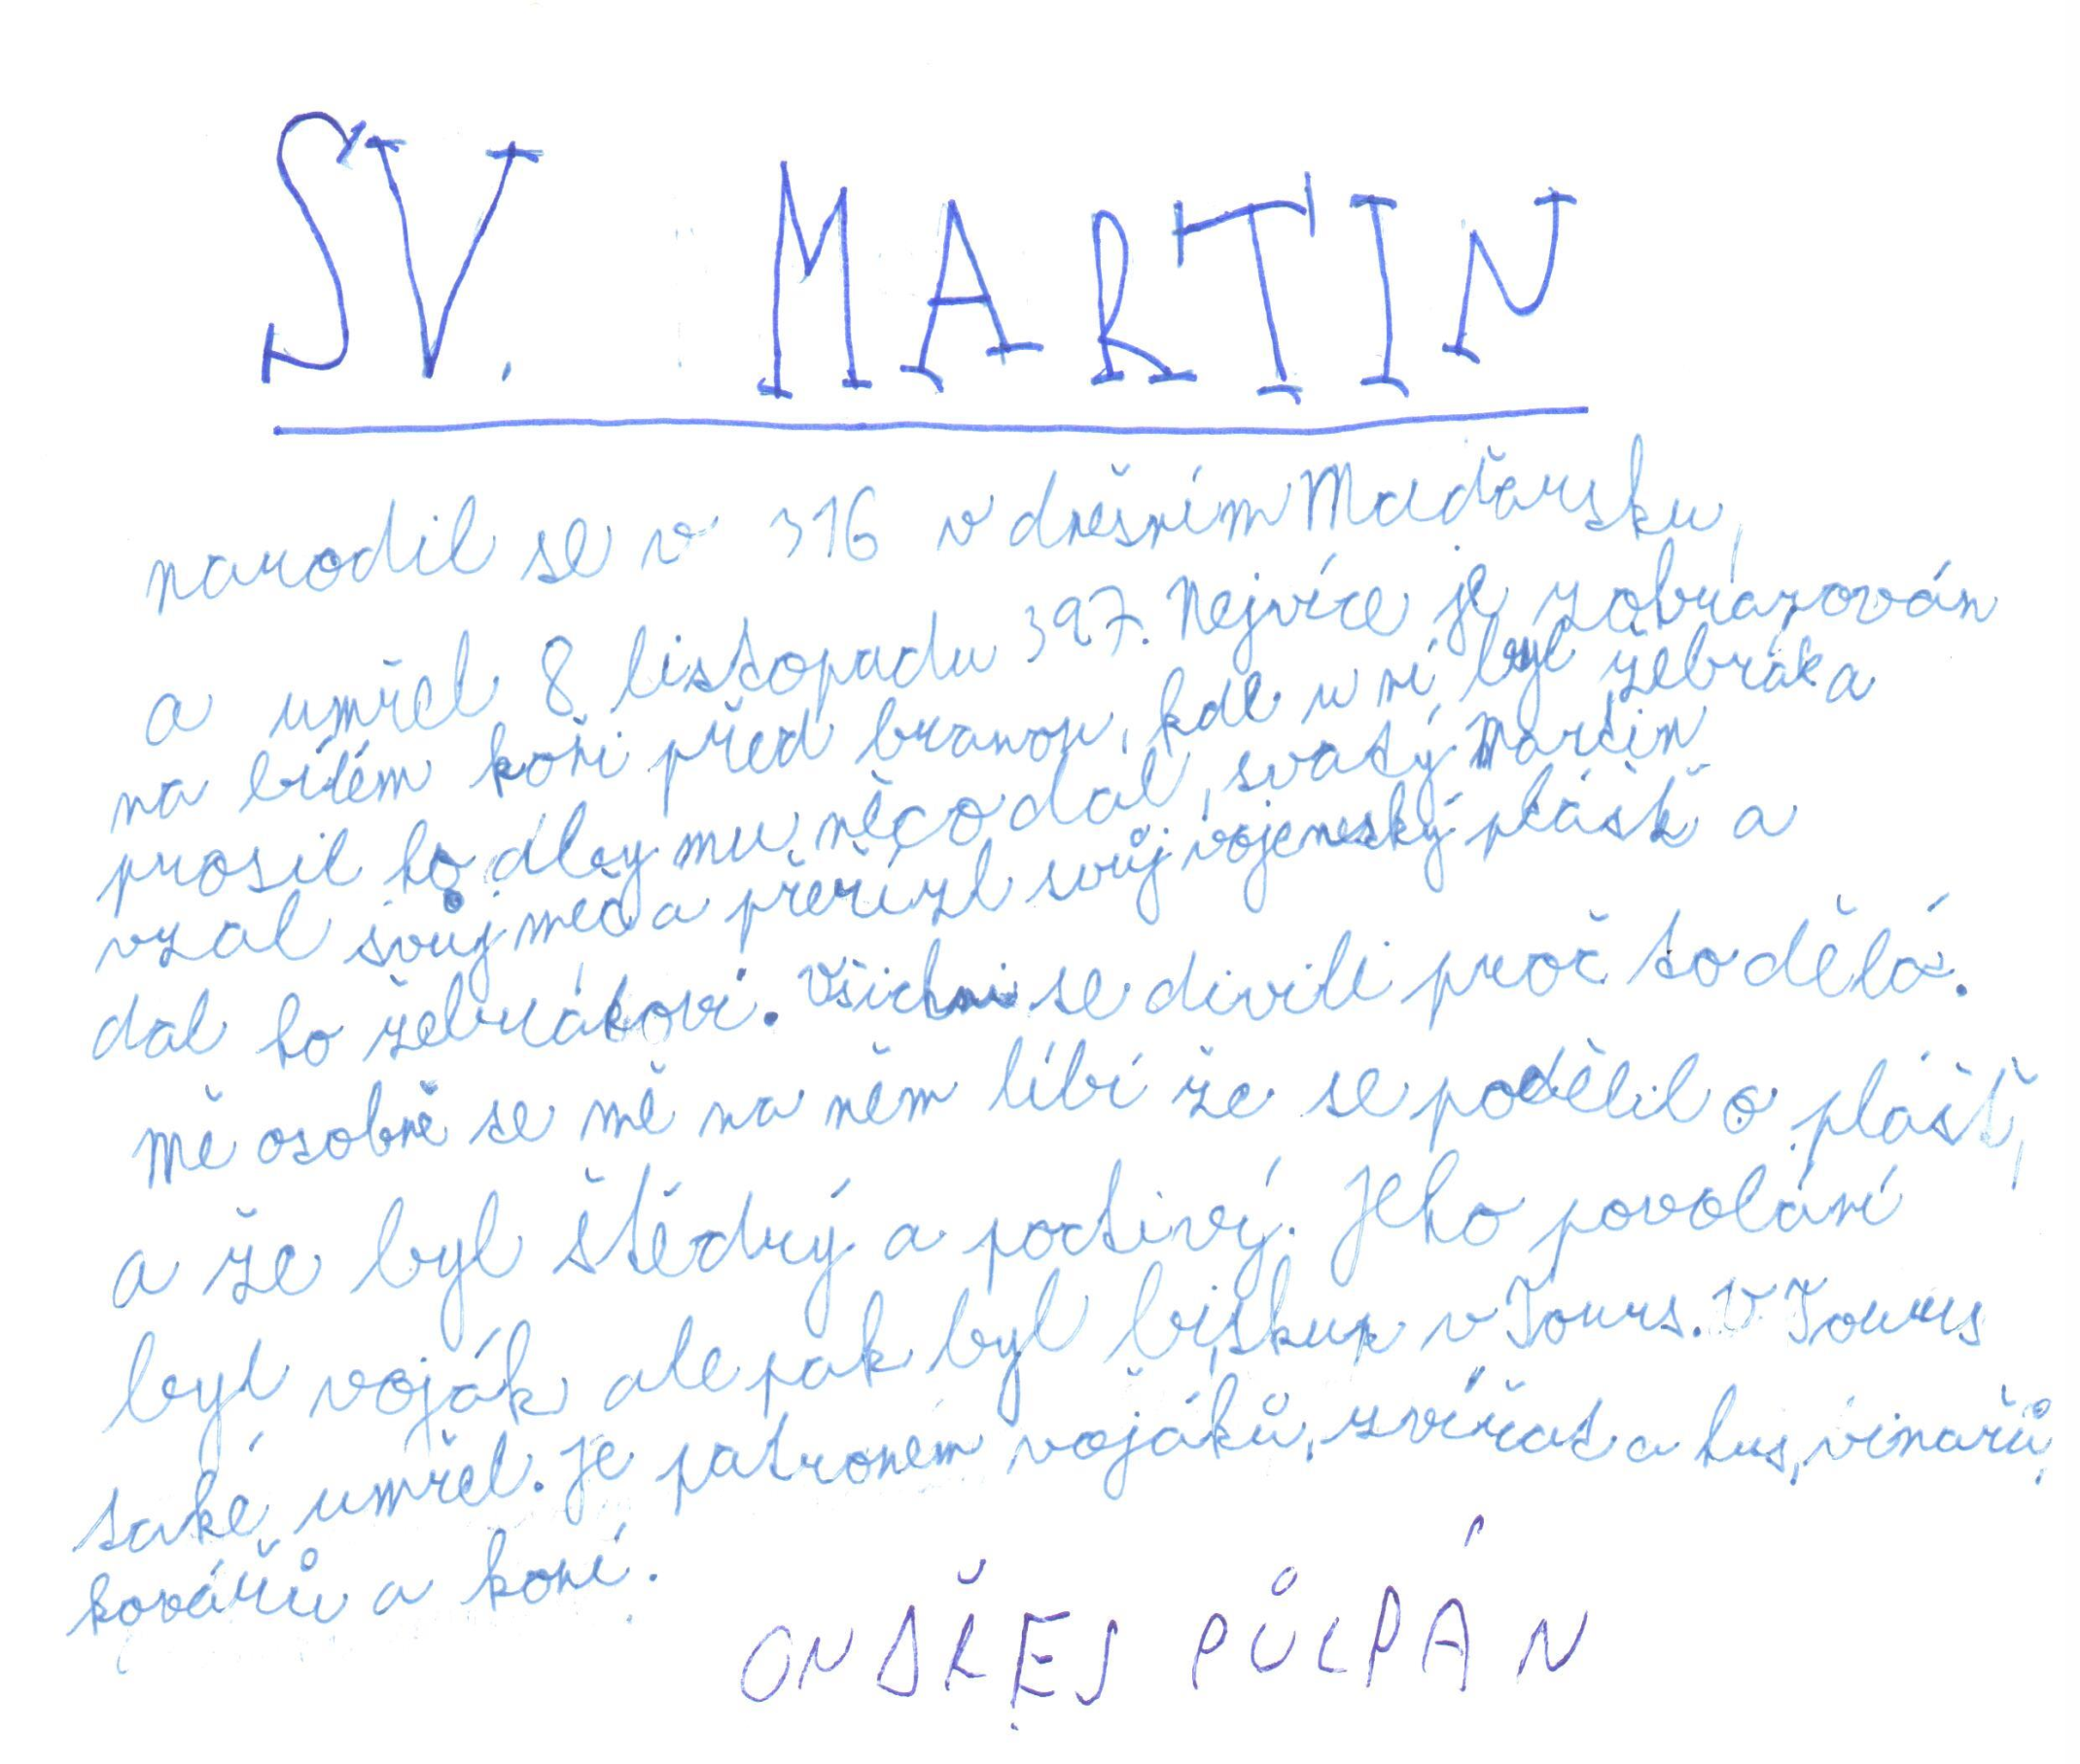 SV. MARTIN
narodil se v 316 v dnešním Maďarsku,
a umřel 8 listopadu 397. Nejvíce je zobrazován
na bílém koni před branou, kde u ní byl žebrák a
prosil ho aby mu něco dal, svatý Martin
vzal svůj meč a přeřízl svůj vojenský plášť a
dal ho žebrákovi. Všichni se divili proč to dělá.
Mě osobně se mě na něm líbí že se podělil o plášť,
a že byl štědrý a poctivý. Jeho povolání
byl voják ale pak byl biskup v Tours. V Tours
také umřel. Je patronem vojáků, zvířat a hus, vinařů,
kovářů a koní.
ONDŘEJ PŮLPÁN